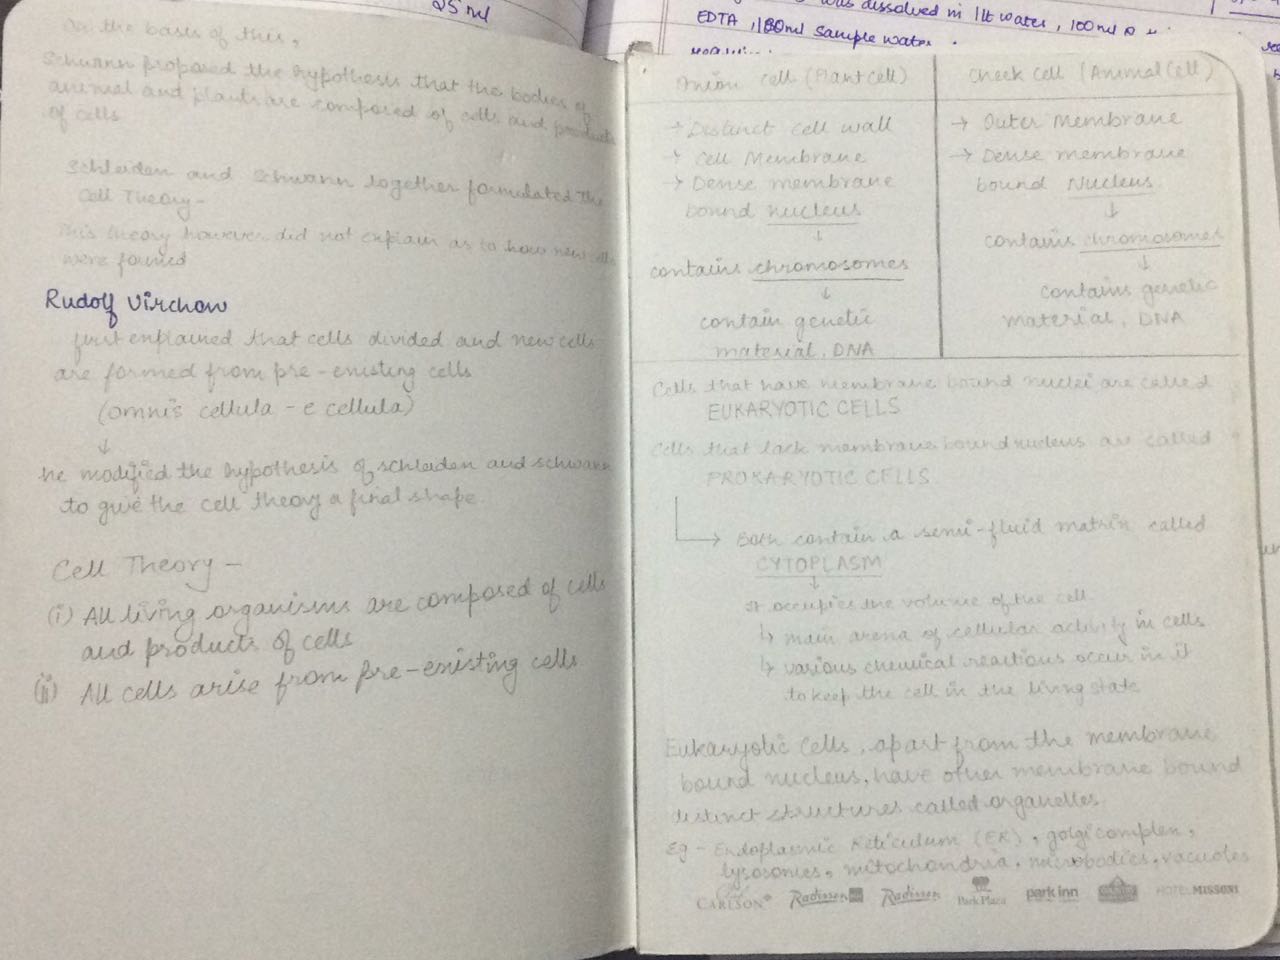 25 ml
was dissolved in 1lt water, 100ml
EDTA, 180ml sample water.
On the basis of this,
Schwann proposed the hypothesis that the bodies of
animal and plants are composed of cells and products
of cells
Schleiden and Schwann together formulated the
Cell Theory-
This theory however did not explain as to how new cells
were formed
Rudolf Virchow
first explained that cells divided and new cells
are formed from pre-existing cells
(omnis cellula - e cellula)
↓
he modified the hypothesis of schleiden and schwann
to give the cell theory a final shape.
Cell Theory -
(i) All living organisms are composed of cells
and products of cells
(ii) All cells arise from pre-existing cells
Onion cell (Plant cell)
→ Distinct cell wall
→ Cell Membrane
→ Dense membrane
bound nucleus
↓
contains chromosomes
↓
contain genetic
material, DNA
Cheek cell (Animal Cell)
→ Outer Membrane
→ Dense membrane
bound Nucleus
↓
contains chromosomes
↓
contains genetic
material, DNA
Cells that have membrane bound nuclei are called
EUKARYOTIC CELLS
Cells that lack membrane bound nucleus are called
PROKARYOTIC CELLS
→ Both contain a semi-fluid matrix called
CYTOPLASM
↓
It occupies the volume of the cell.
↳ main arena of cellular activity in cells
↳ various chemical reactions occur in it
to keep the cell in the living state
Eukaryotic cells, apart from the membrane
bound nucleus, have other membrane bound
distinct structures called organelles.
Eg - Endoplasmic Reticulum (ER), golgi complex,
lysosomes, mitochondria, microbodies, vacuoles
CARLSON Radisson Radisson Park Plaza park inn HOTEL MISSONI